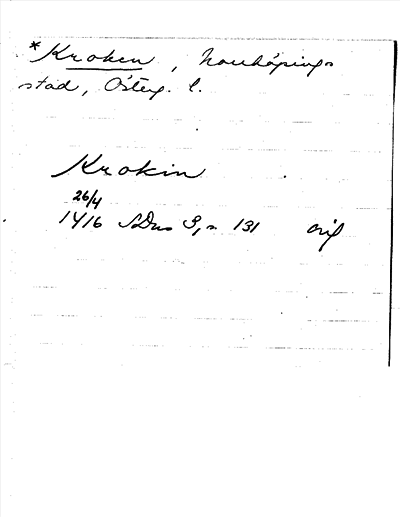 *Kroken, Norrköpings
stad, Österg. l.
Krokin
26/4
1416 SDns 3, s. 131 orig